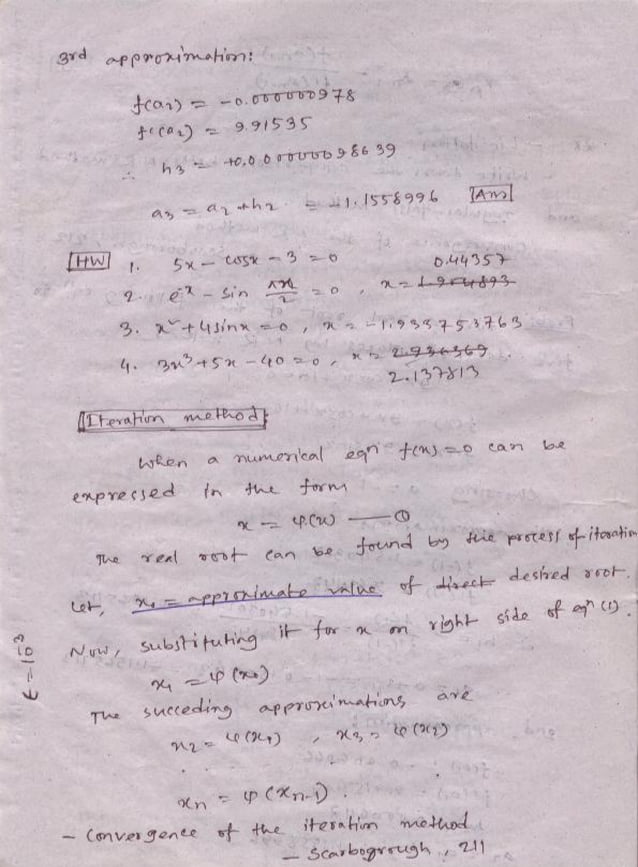 3rd approximation:
f(a2) = -0.000000978
f'(a2) = 9.91535
∴ h3 = +0.00000098639
a3 = a2 + h2 = 1.1558996 [Ans]
[HW] 1. 5x - cosx - 3 = 0
2. e^x - sin πx/2 = 0, x = 0.44357
3. x² + 4sinx = 0, x = -1.933753763
4. 3x³ + 5x - 40 = 0, x = 2.137813
Iteration method
When a numerical eqn f(x) = 0 can be
expressed in the form
x = φ(x) — ①
The real root can be found by the process of iteration
Let, x0 = approximate value of direct desired root.
Now, substituting it for x on right side of eqn (1).
x1 = φ(x0)
The succeding approximations are
x2 = φ(x1), x3 = φ(x2)
xn = φ(xn-1).
- Convergence of the iteration method
- Scarbogrough, 211
ε-103